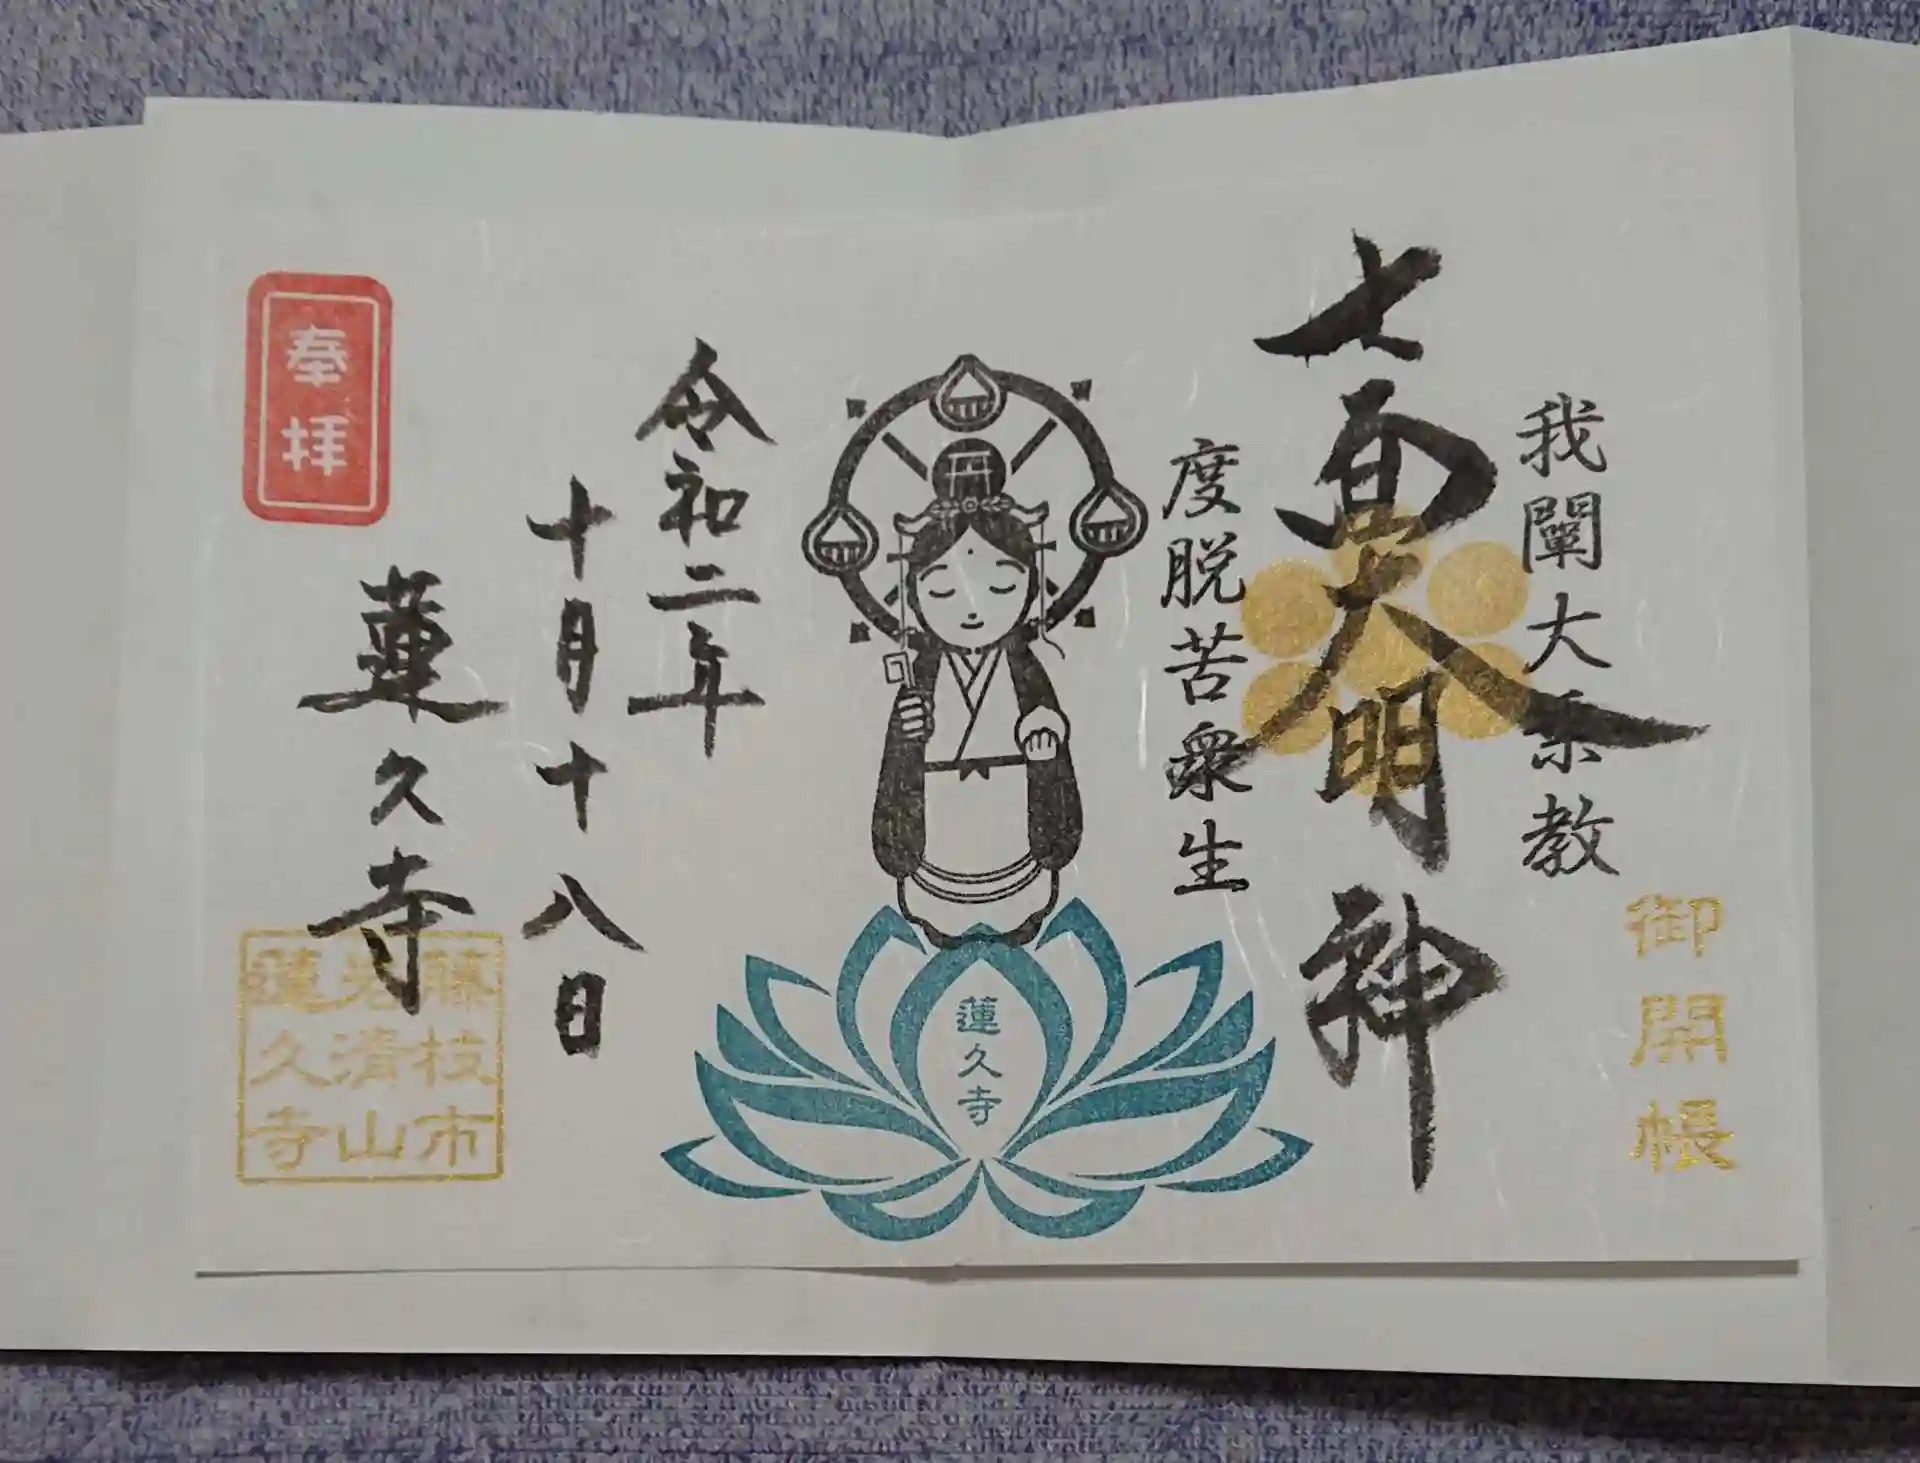 御開帳
我闡大乗教
七面大明神
度脱苦衆生
蓮久寺
令和二年
十月十八日
蓮久寺
奉拝
藤枝市
岩滑山
蓮久寺